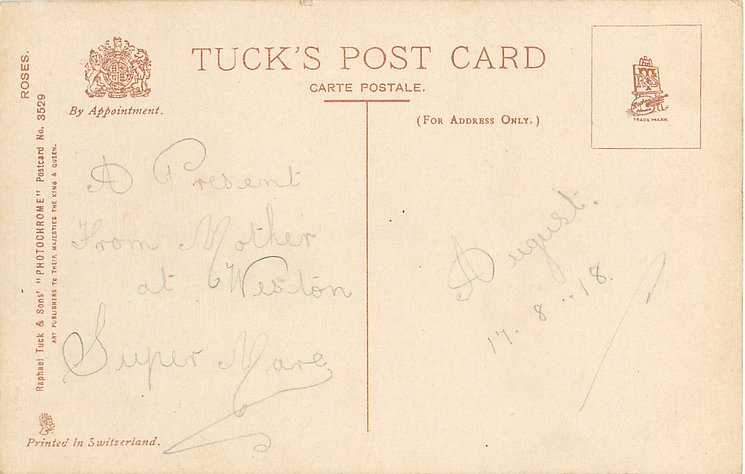 TUCK'S POST CARD
CARTE POSTALE.
By Appointment.
(FOR ADDRESS ONLY.)
TRADE MARK
ROSES.
Raphael Tuck & Sons' "PHOTOCHROME" Postcard No. 3529
ART PUBLISHERS TO THEIR MAJESTIES THE KING & QUEEN.
A Present
From Mother
at Weston
Super Mare
August.
17. 8..18.
Printed in Switzerland.